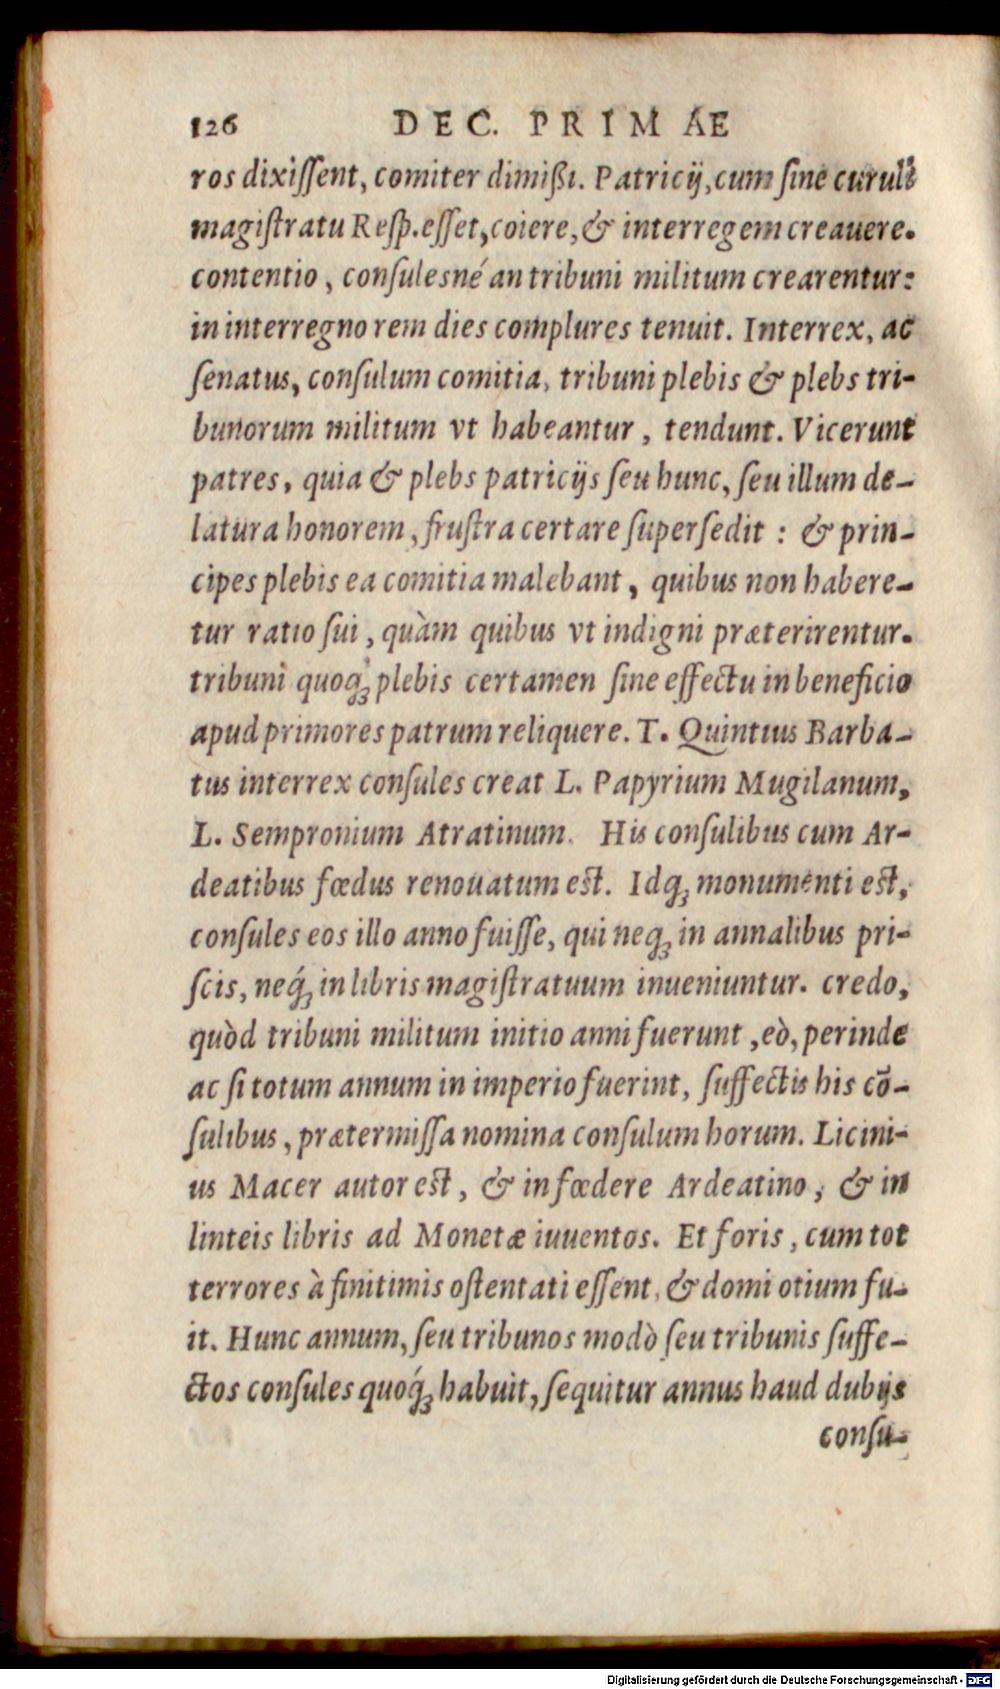 126 DEC. PRIMAE
ros dixiſſent, comiter dimißi. Patricij, cum ſine curuli
magiſtratu Reſp. eſſet, coiere, & interregem creauere.
contentio, conſulesné an tribuni militum crearentur:
in interregno rem dies complures tenuit. Interrex, ac
ſenatus, conſulum comitia, tribuni plebis & plebs tri-
bunorum militum vt habeantur, tendunt. Vicerunt
patres, quia & plebs patricijs ſeu hunc, ſeu illum de-
latura honorem, fruſtra certare ſuperſedit : & prin-
cipes plebis ea comitia malebant, quibus non habere-
tur ratio ſui, quàm quibus vt indigni præterirentur.
tribuni quoqꝫ plebis certamen ſine effectu in beneficio
apud primores patrum reliquere. T. Quintius Barba-
tus interrex conſules creat L. Papyrium Mugilanum,
L. Sempronium Atratinum. His conſulibus cum Ar-
deatibus fœdus renouatum eſt. Idqꝫ monumenti eſt,
conſules eos illo anno fuiſſe, qui neqꝫ in annalibus pri-
ſcis, neq́ꝫ in libris magiſtratuum inueniuntur. credo,
quòd tribuni militum initio anni fuerunt, eò, perinde
ac ſi totum annum in imperio fuerint, ſuffectis his cō-
ſulibus, prætermiſſa nomina conſulum horum. Licini-
us Macer autor eſt, & in fœdere Ardeatino, & in
linteis libris ad Monetæ iuuentos. Et foris, cum tot
terrores à finitimis oſtentati eſſent, & domi otium fu-
it. Hunc annum, ſeu tribunos modò ſeu tribunis ſuffe-
ctos conſules quoq́ꝫ habuit, ſequitur annus haud dubijs
conſu-
Digitalisierung gefördert durch die Deutsche Forschungsgemeinschaft - DFG